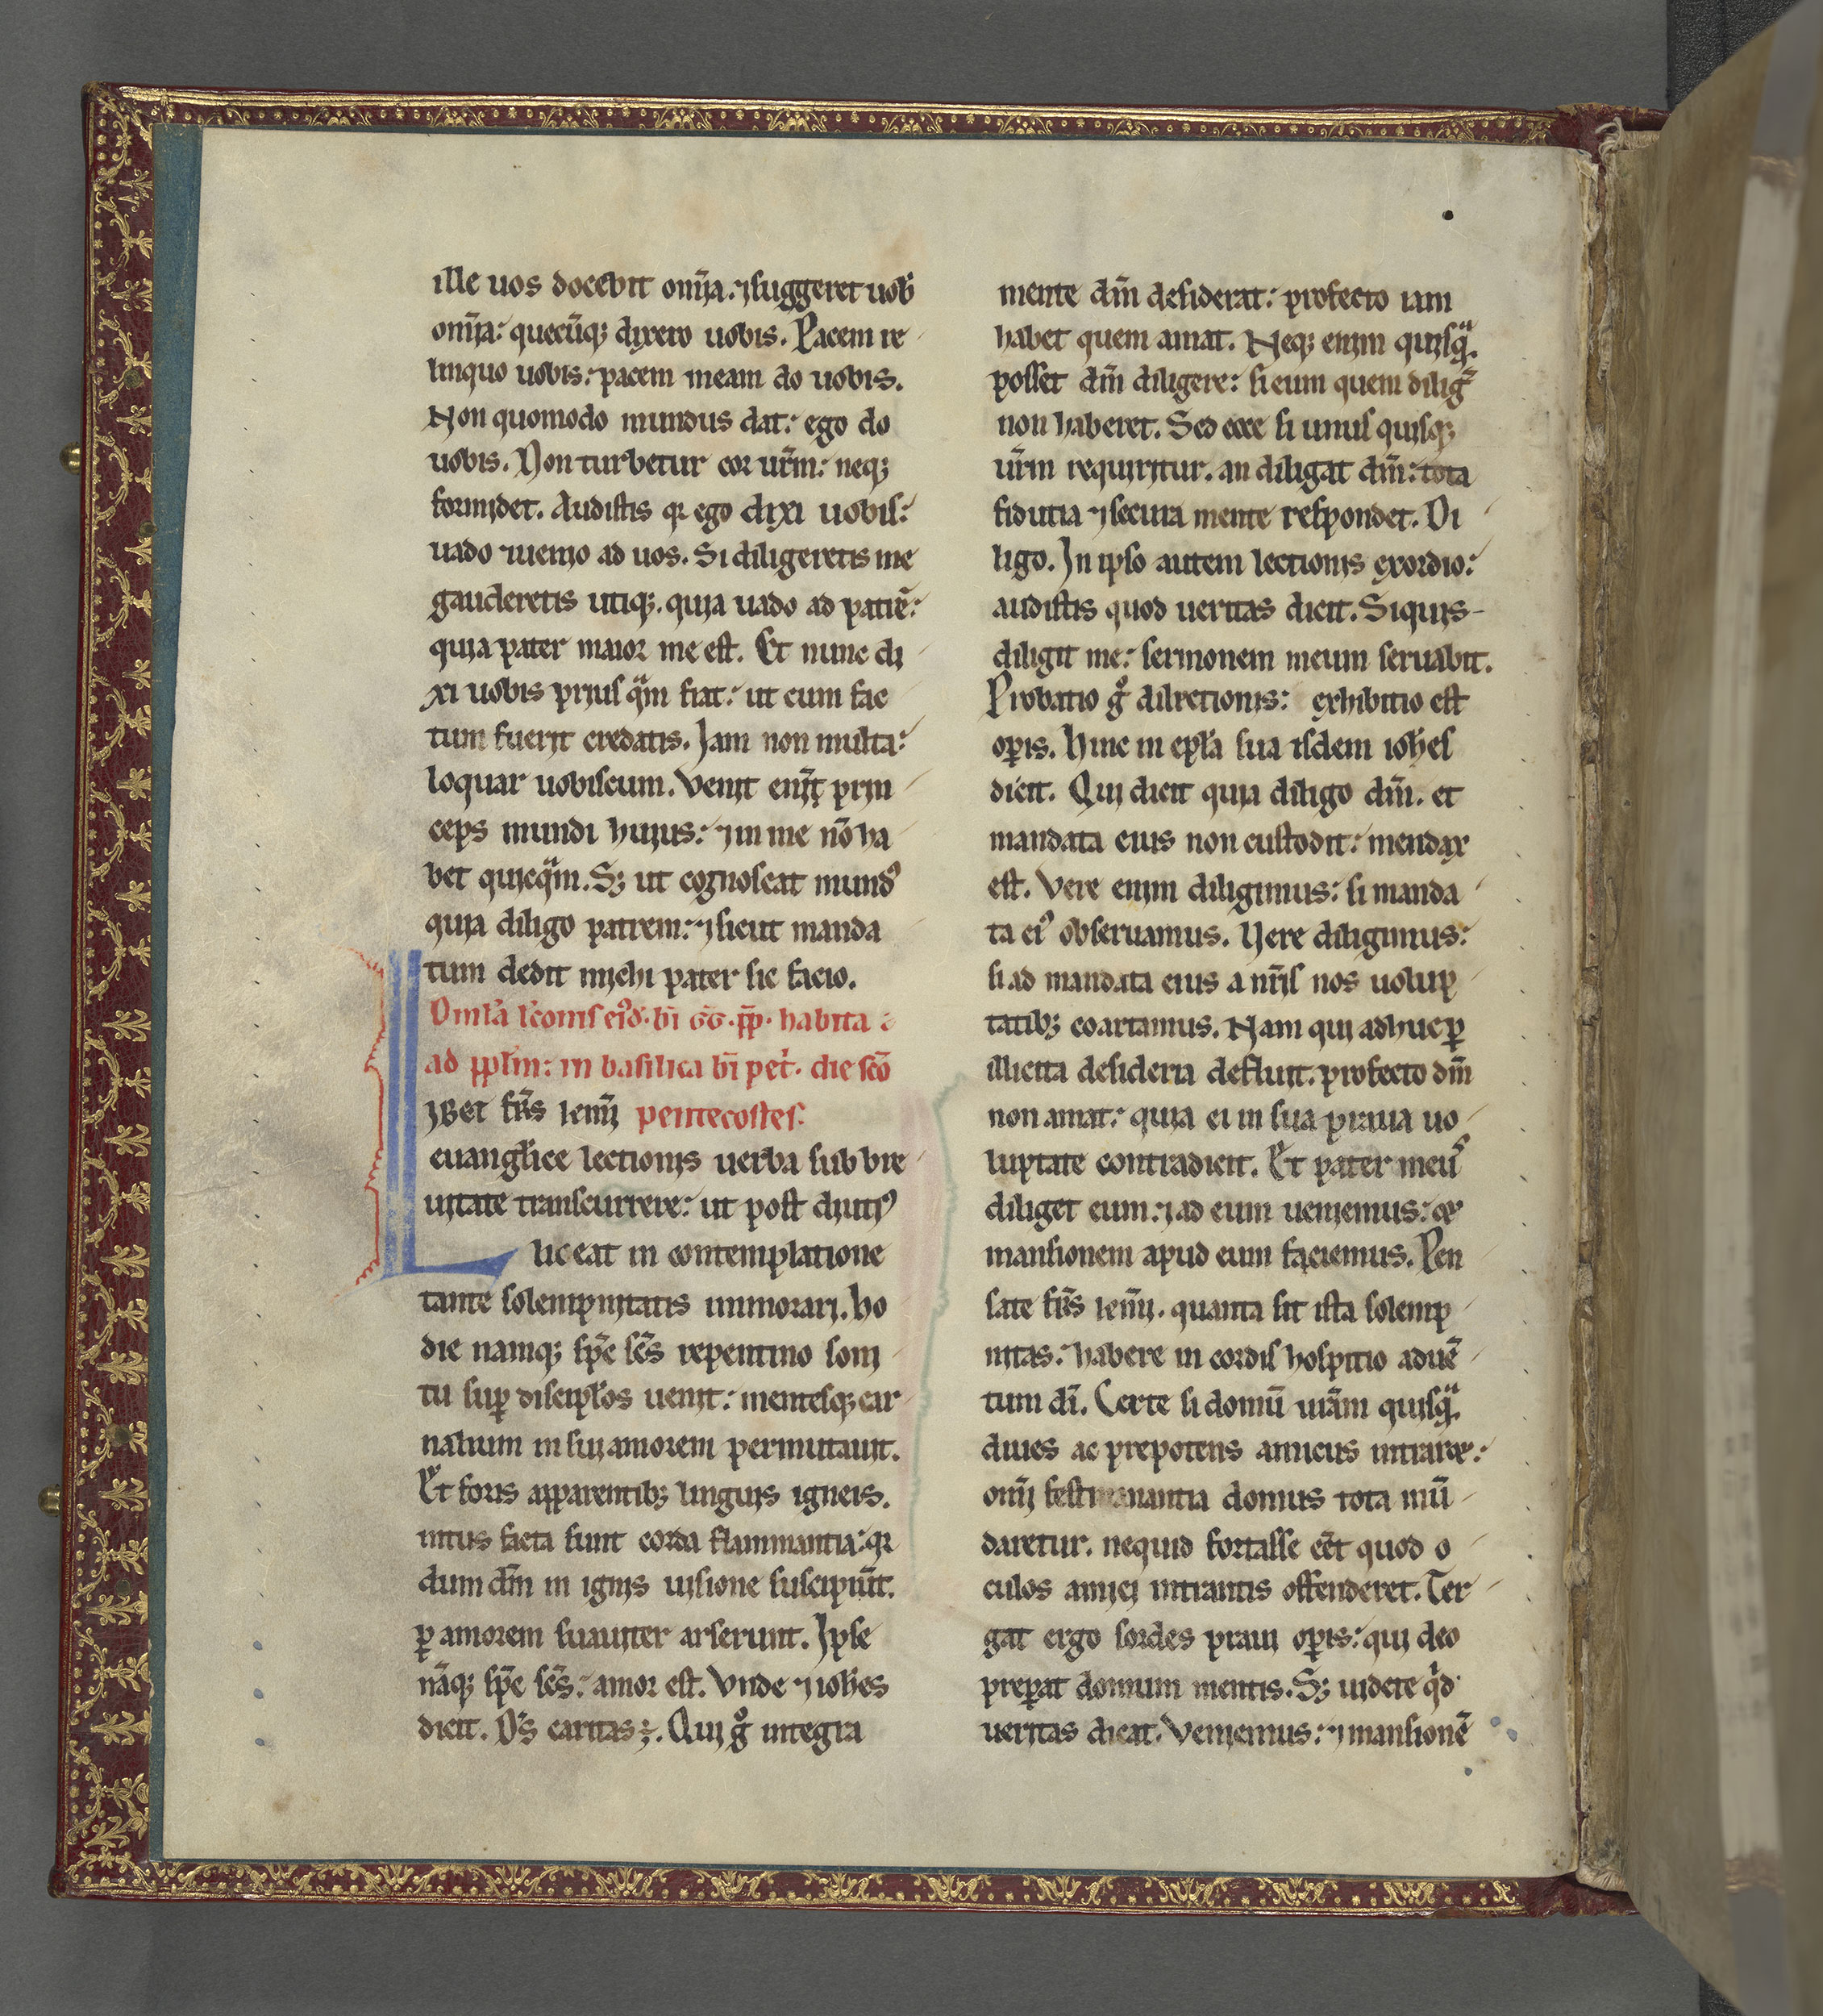 ille uos docebit om̄ia. ⁊ suggeret uob̄
om̄ia: quecūq; dixero uobis. Pacem re
linquo uobis: pacem meam do uobis.
Non quomodo mundus dat: ego do
uobis. Non turbetur cor ur̄m: neq;
formidet. Audistis qꝛ ego dixi uobis:
uado ⁊ uenio ad uos. Si diligeretis me
gauderetis utiq;. quia uado ad patrē:
quia pater maior me est. Et nunc di
xi uobis prius qᵃm fiat: ut cum fac
tum fuerit credatis. Iam non multa:
loquar uobiscum. Venit enim̄ prin
ceps mundi huius: ⁊ in me nō ha
bet quicqᵃm. S; ut cognoscat mundꝰ
quia diligo patrem: ⁊ sicut manda
tum dedit michi pater sic facio.
Omla lc̄onis eiꝰd. bi GG. pp̄. habita
ad pplm̄: in basilica bi pet. die sc̄o
LIbet fr̄s kr̄mi pentecostes.
euangl̄ice lectionis uerba sub bre
uitate transcurrere: ut post diutiꝰ
liceat in contemplatione
tante solempnitatis immorari. ho
die namq; sp̄c sc̄s repentino soni
tu suꝑ discipl̄os uenit: mentesq; car
nalium in sui amorem permutauit.
Et foris apparentib; linguis igneis.
intus facta sunt corda flammantia: qꝛ
dum dm̄ in ignis uisione suscipiūt.
ꝑ amorem suauiter arserunt. Ipse
nāq; sp̄c sc̄s: amor est. Vnde ⁊ ioh̄es
dicit. Ds̄ caritas ÷. Qui gͦ integra
mente dm̄ desiderat: profecto iam
habet quem amat. Neq; enim quisqᵃ.
posset dm̄ diligere: si eum quem diligt̄
non haberet. Sed ecce si unus quisq;
ur̄m requiritur. an diligat dm̄: tota
fidutia ⁊ secura mente respondet. Di
ligo. In ipso autem lectionis exordio:
audistis quod ueritas dicit. Siquis
diligit me: sermonem meum seruabit.
Probatio gͦ dilectionis: exhibitio est
oꝑis. Hinc in epl̄a sua isdem ioh̄es
dicit. Qui dicit quia diligo dm̄. et
mandata eius non custodit: mendax
est. Vere enim diligimus: si manda
ta eiꝰ obseruamus. Vere diligimus:
si ad mandata eius a nr̄is nos uolup
tatib; coartamus. Nam qui adhuc ꝑ
illicita desideria defluit. profecto dm̄
non amat: quia ei in sua praua uo
luptate contradicit. Et pater meuꝰ
diliget eum: ⁊ ad eum ueniemus: et
mansionem apud eum faciemus. Pen
sate fr̄s kr̄mi. quanta sit ista solemp
nitas: habere in cordis hospitio aduē
tum di. Certe si domū ur̄am quisqᵃ.
diues ac prepotens amicus intraret:
omi festinantia domus tota mū
daretur. nequid fortasse eēt quod o
culos amici intrantis offenderet. Ter
gat ergo sordes praui oꝑis: qui deo
preꝑat domum mentis. S; uidete qͥd
ueritas dicat. Veniemus: ⁊ mansionē